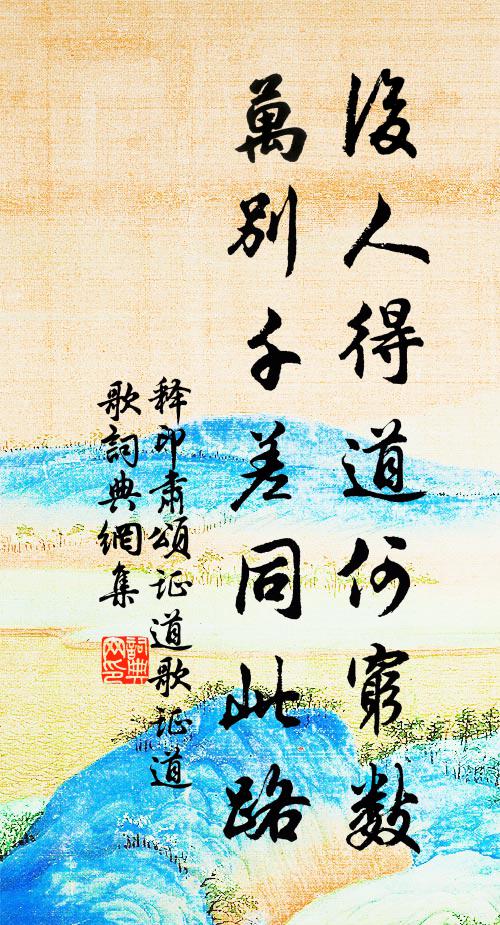 後人得道何窮数
萬别千差同此路
释印肅頌证道歌证道
歌詞典網集
詞典